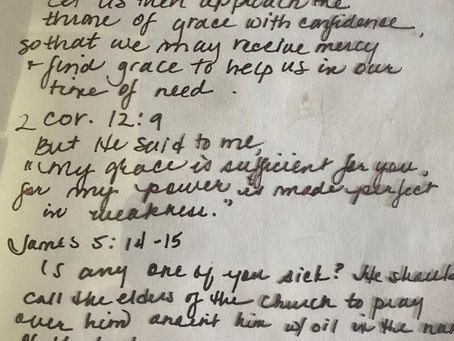 Let us then approach the
throne of grace with confidence,
so that we may receive mercy
+ find grace to help us in our
time of need.
2 Cor. 12:9
But He said to me,
"My grace is sufficient for you,
for my power is made perfect
in weakness."
James 5:14-15
Is any one of you sick? He shoul
call the elders of the Church to pray
over him anoint him w/ oil in the na